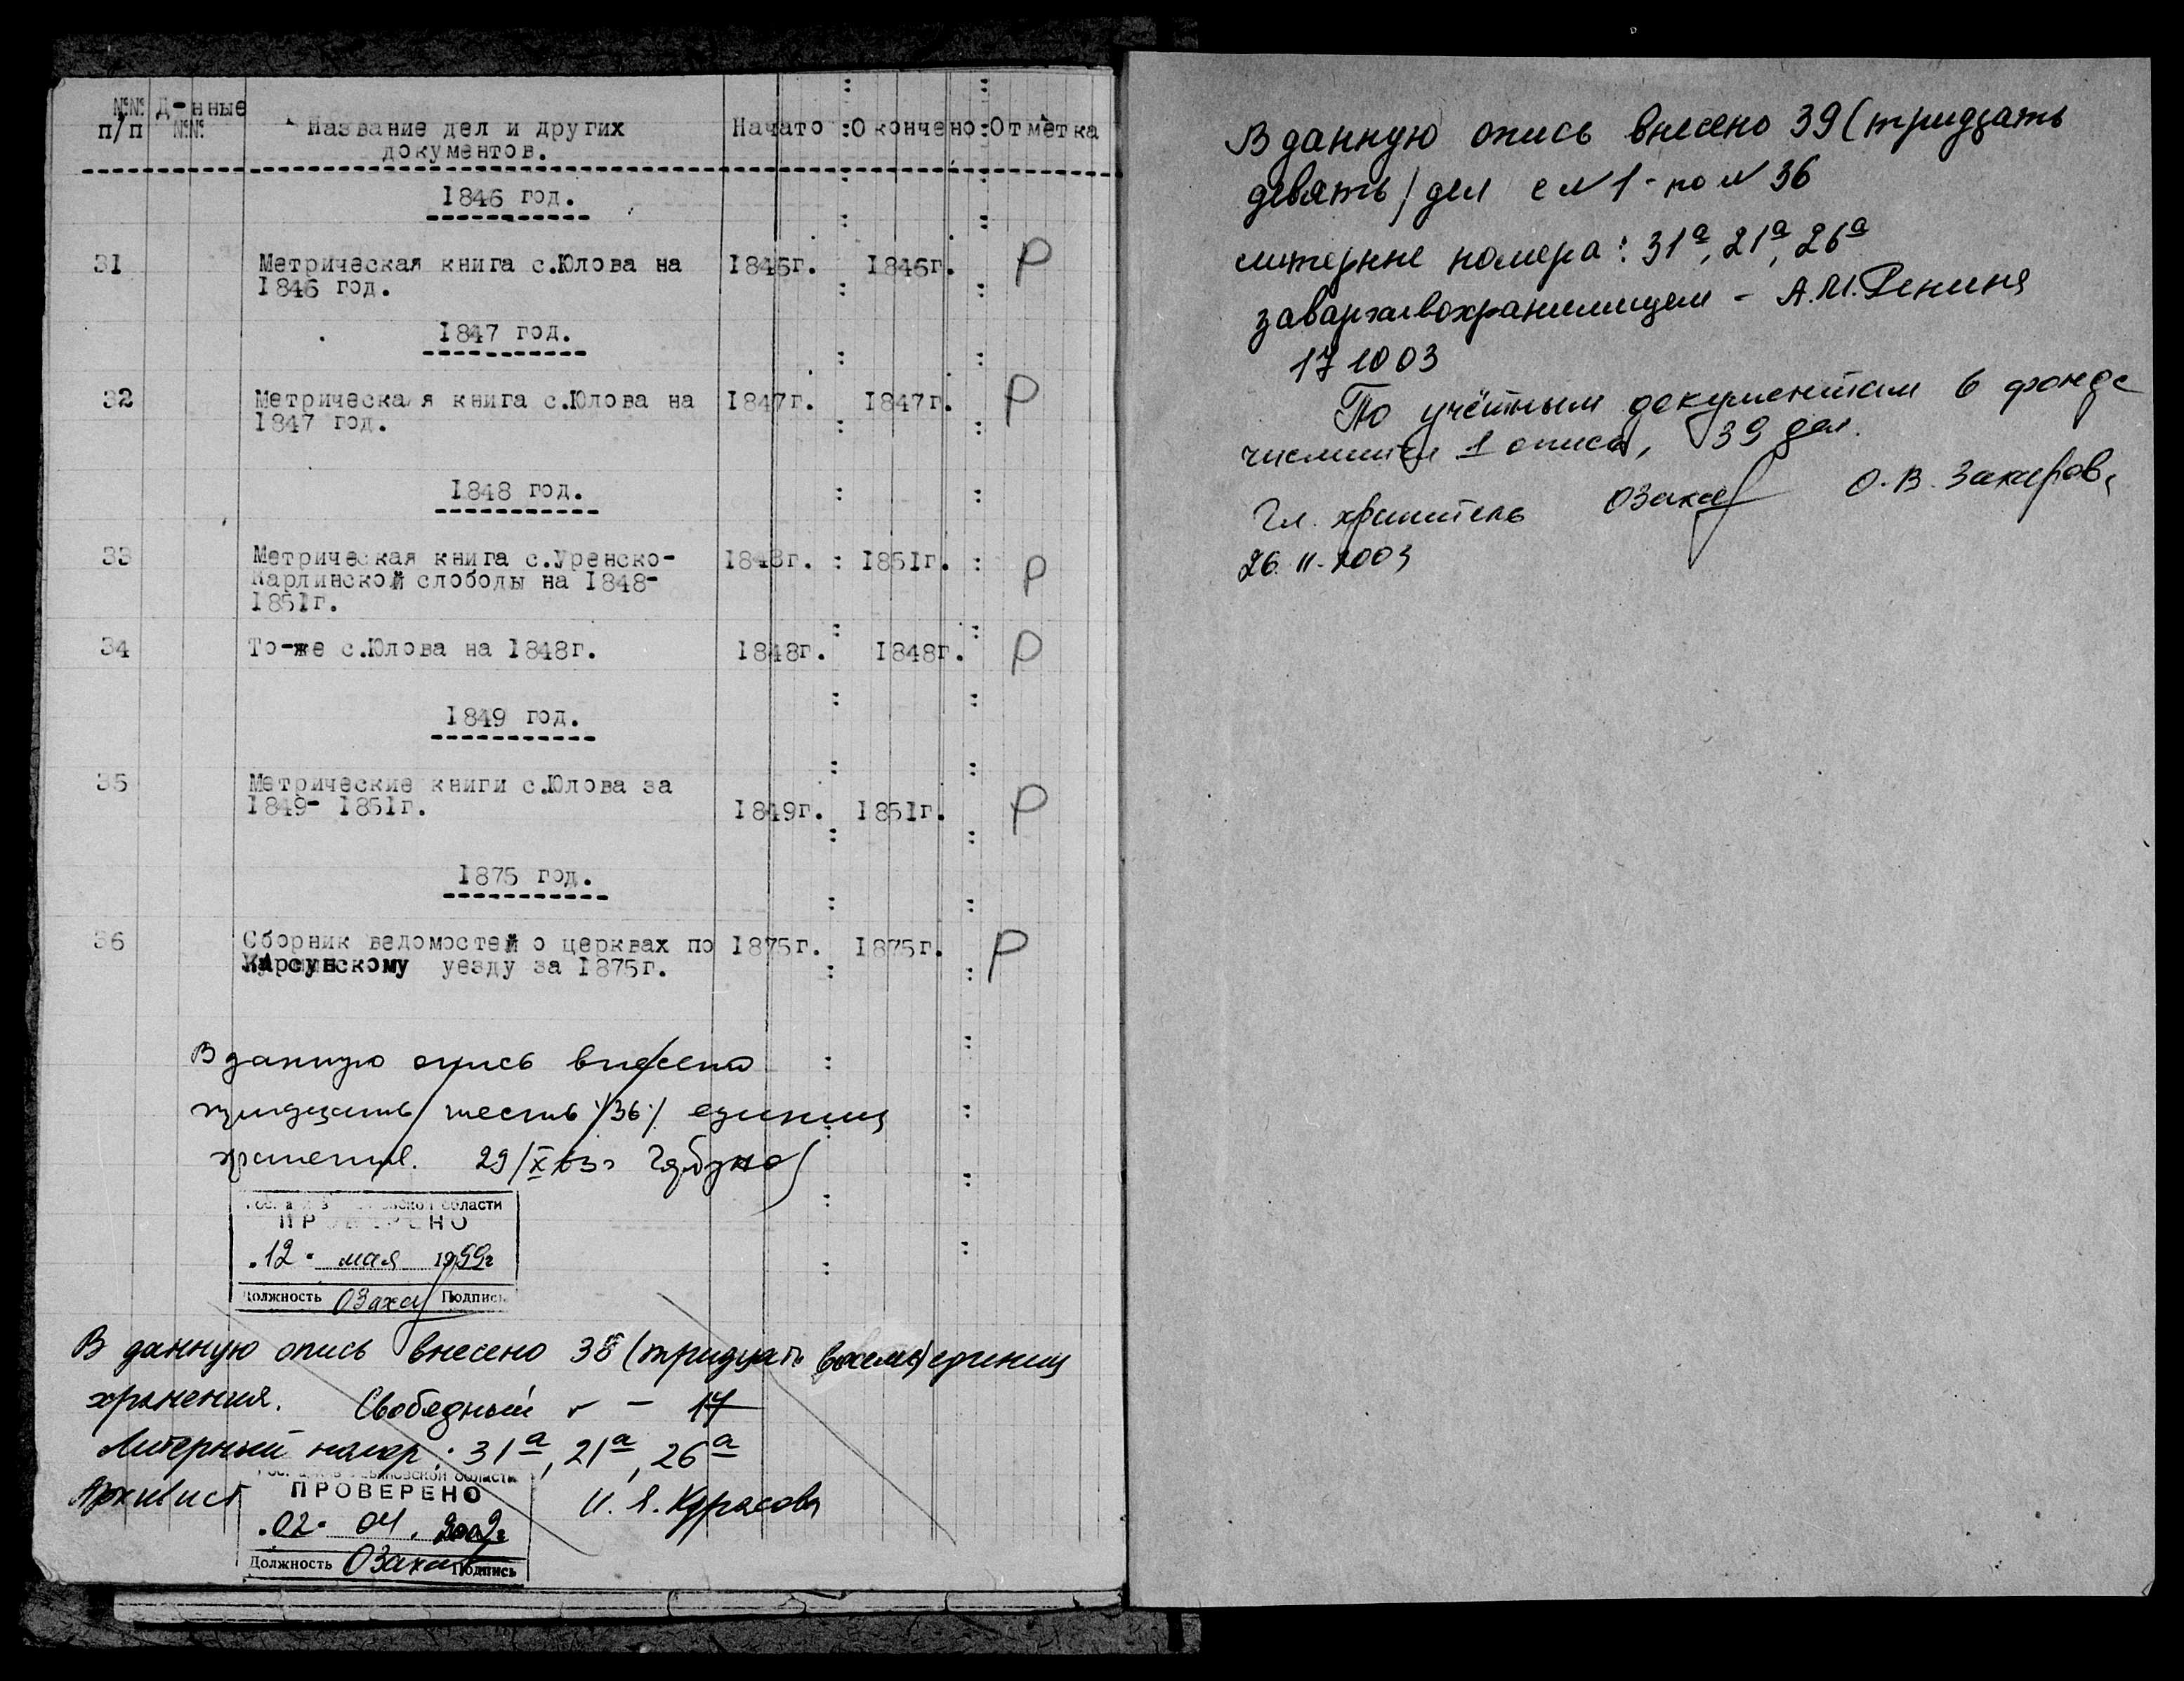 №№ п/п Д-нные №№ Название дел и других документов. Начато Окончено Отметка
1846 год.
31 Метрическая книга с.Юлова на 1846г. 1846г. Р
1846 год.
1847 год.
32 Метрическая книга с.Юлова на 1847г. 1847г. Р
1847 год.
1848 год.
33 Метрическая книга с.Уренско- 1848г. 1851г. Р
Карлинской слободы на 1848-
1851г.
34 То-же с.Юлова на 1848г. 1848г. 1848г. Р
1849 год.
35 Метрические книги с.Юлова за
1849- 1851г. 1849г. 1851г. Р
1875 год.
36 Сборник ведомостей о церквах по 1875г. 1875г. Р
Карсунскому уезду за 1875г.
В данную опись внесено
тридцать шесть /36/ единиц
хранения. 29/X
области
ПРОВЕРЕНО
"12" мая 1999г
Должность ОЗаха Подпись
В данную опись внесено 38 (тридцать восемь) единиц
хранения. Свободный № - 17
Литерный номер: 31а, 21а, 26а
Архивист И. Я. Курасова
Ульяновской области
ПРОВЕРЕНО
"02" 04. 2002г
Должность ОЗаха Подпись
В данную опись внесено 39 (тридцать
девять) дел с № 1 - по № 36
литерные номера: 31а, 21а, 26а
завархивохранилищем - А.И.Ренина
17 10 03
По учётным документам в фонде
числится 1 опись, 39 дел.
Гл. хранитель ОЗаха О.В. Захарова
26.11.2003